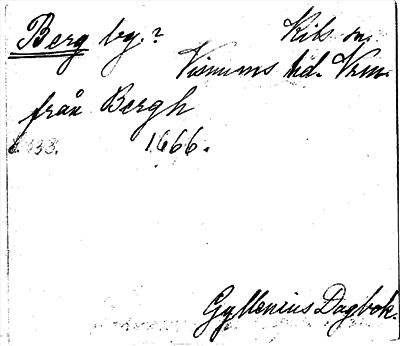 Berg by.? Kils sn.
Visnums hd. Vrm.
från Bergh
s. 133. 1666.
Gyllenius Dagbok.